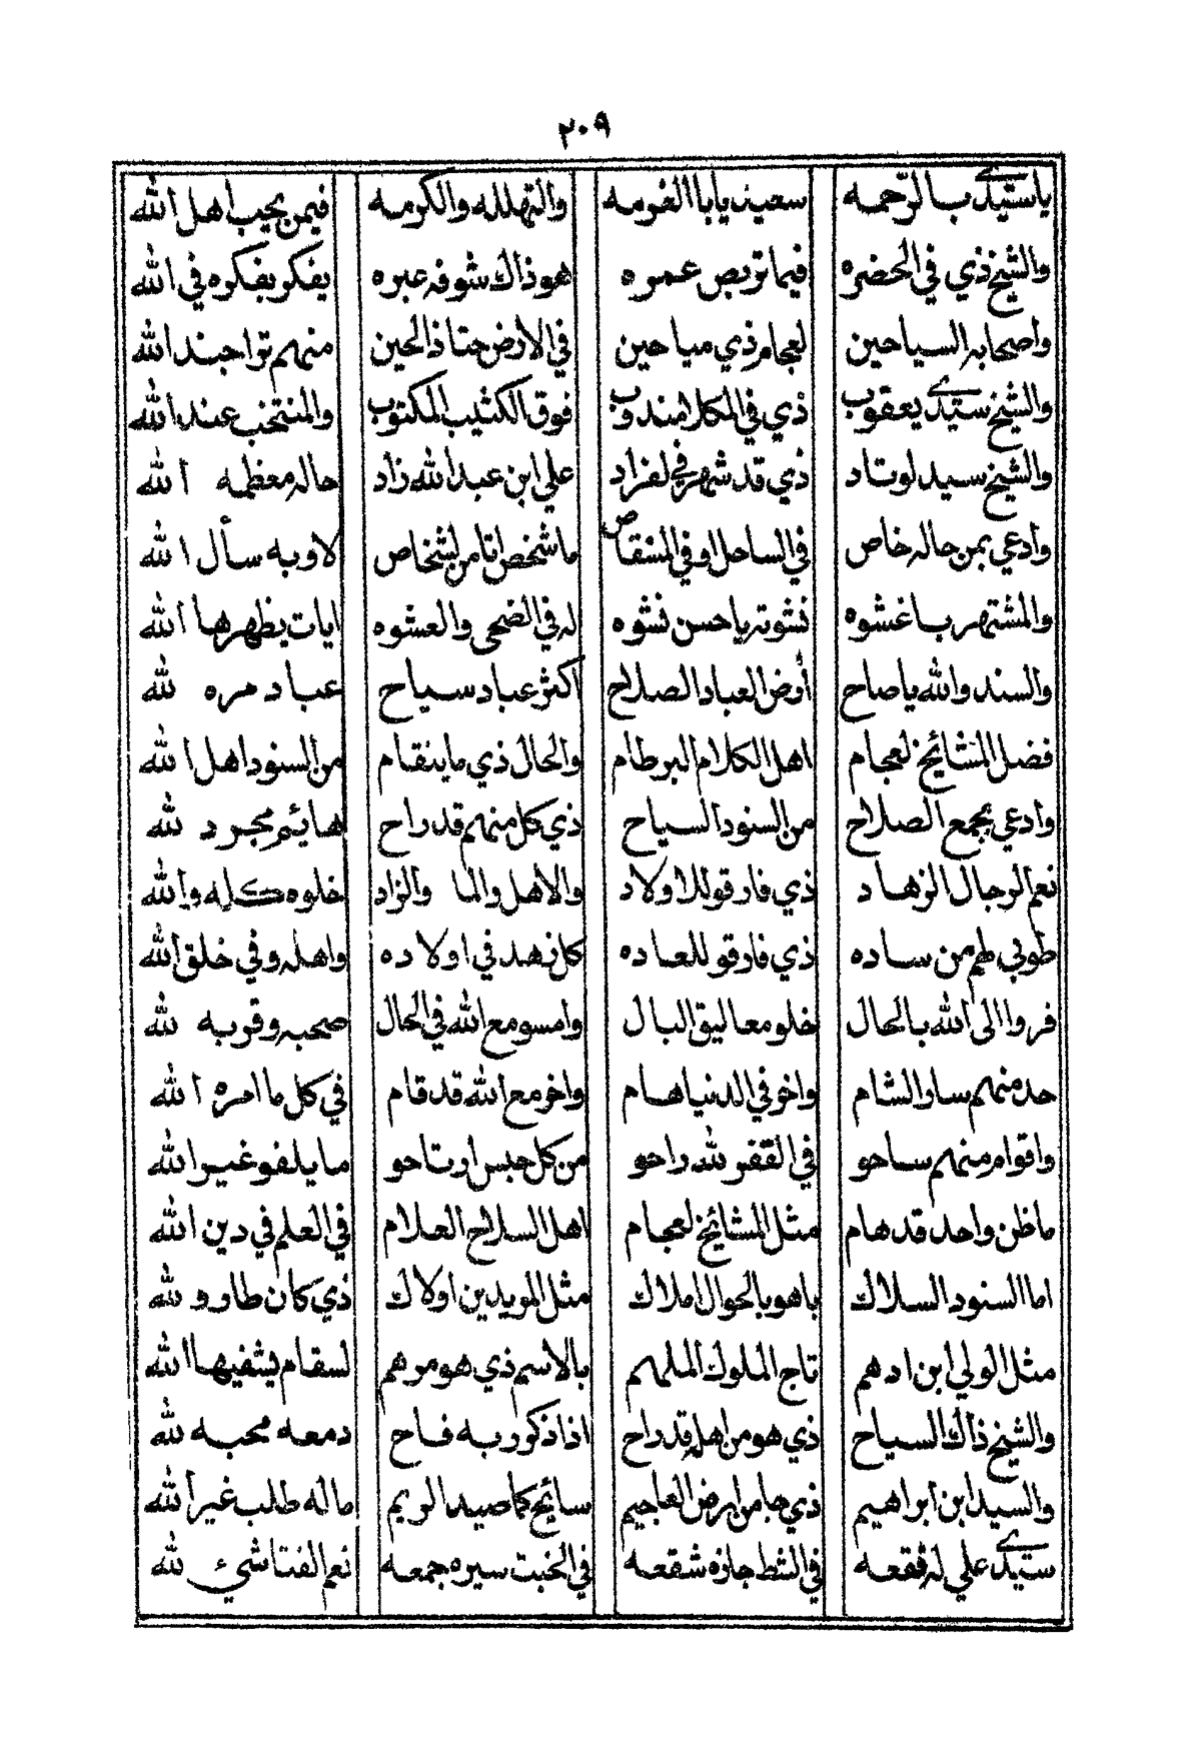 ٢٠٩
ياسيدي بالرحمه سعيد ياباالفرمه والتهلله والكرمه فيمن يحب اهل الله
والشيخ ذي في الحضره فيما تربص عمره هو ذاك شوفه عبره يفكر بفكره في الله
واصحابه السياحين لعجام ذي مياحين في الارض حتا ذالحين منهم تواجند الله
والشيخ سيدي يعقوب ذي في المكلا مندوب فوق الكثيب المكتوب والمنتخب عند الله
والشيخ سيد لوتاد ذي قد شهر في لفراد علي ابن عبدالله زاد حاله معظمه الله
وادعي بمن حاله خاص في الساحل او في المشقاص ما شخص اتا من لشخاص لاوبه سأل الله
والمشتهر باغشوه نشوته يا حسن نشوه له في الضحى والعشوه ايات يظهرها الله
والسند والله ياصاح أرض العباد الصلاح اكثر عباد سياح عباد مره لله
فضل المشائخ لعجام اهل الكلام البرطام والحال ذي ما ينقام من السنود اهل الله
وادعي بجمع الصلاح من السنود السياح ذي كل منهم قد راح هايئم مجرد لله
نعم الرجال الزهاد ذي فارقو للاولاد والاهل والما والزاد خلوه كله والله
طوبي لهم من ساده ذي فارقو للعاده كل زهد في اولاده واهله وفي خلق الله
فروا الى الله بالحال خلو معاليق البال وامسو مع الله في الحال صحبه وقربه لله
حد منهم ساو الشام واخر في الدنيا هام واخر مع الله قد قام في كل ما امره الله
واقوام منهم ساحو في القفر لله راحو من كل حبس ارتاحو ما يلفو غير الله
ماظن واحد قد هام مثل المشائخ لعجام اهل السلاح العلام في العلم في دين الله
اما السنود السلاك باهو بالحوال املاك مثل المريدين اولاك ذي كان طارو لله
مثل الولي ابن ادهم تاج الملوك الملهم بالاسم ذي هو مرهم لسقام يشفيها الله
والشيخ ذاك السياح ذي هو من اهله قد راح اذا ذكور به فاح دمعه محبه لله
والسيد ابن ابراهيم ذي جا من ارض العاجيم سائح كما صيد الريم ماله طلب غير الله
سيدي علي له فقعه في الشط جازه شقعه في الخبت سيره جمعه نعم الفتا شيء لله